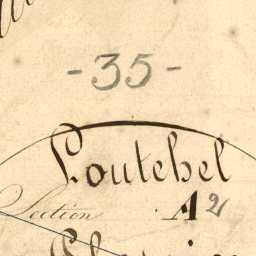 - 35 -
Loutehel
Section A2